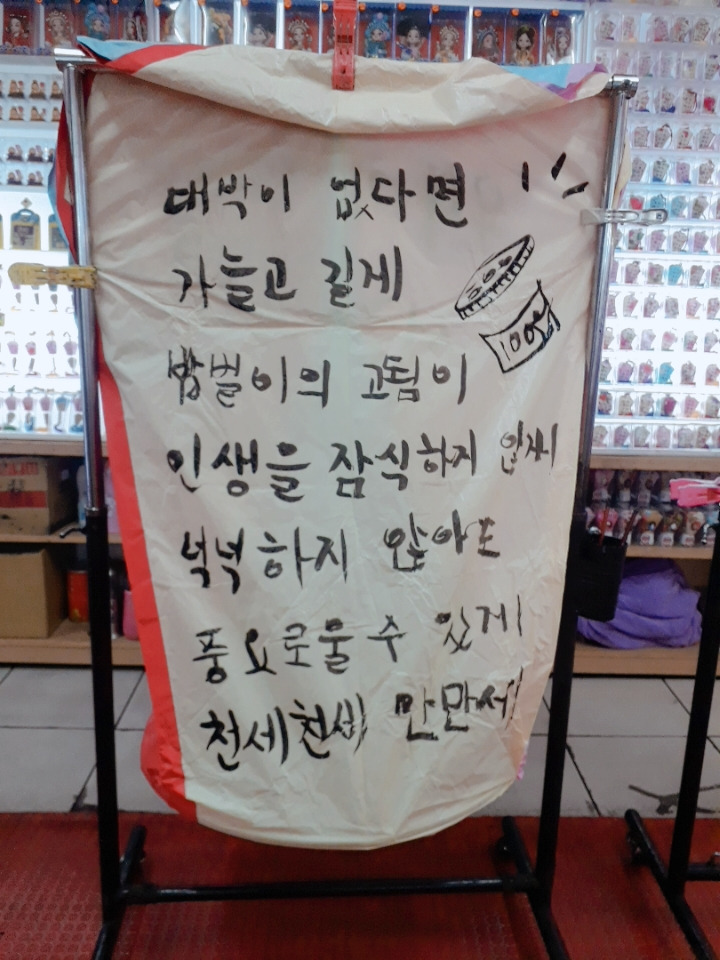 대박이 없다면
가늘고 길게
밥벌이의 고됨이
인생을 잠식하지 않게
넉넉하지 않아도
풍요로울 수 있게
천세천세 만만세